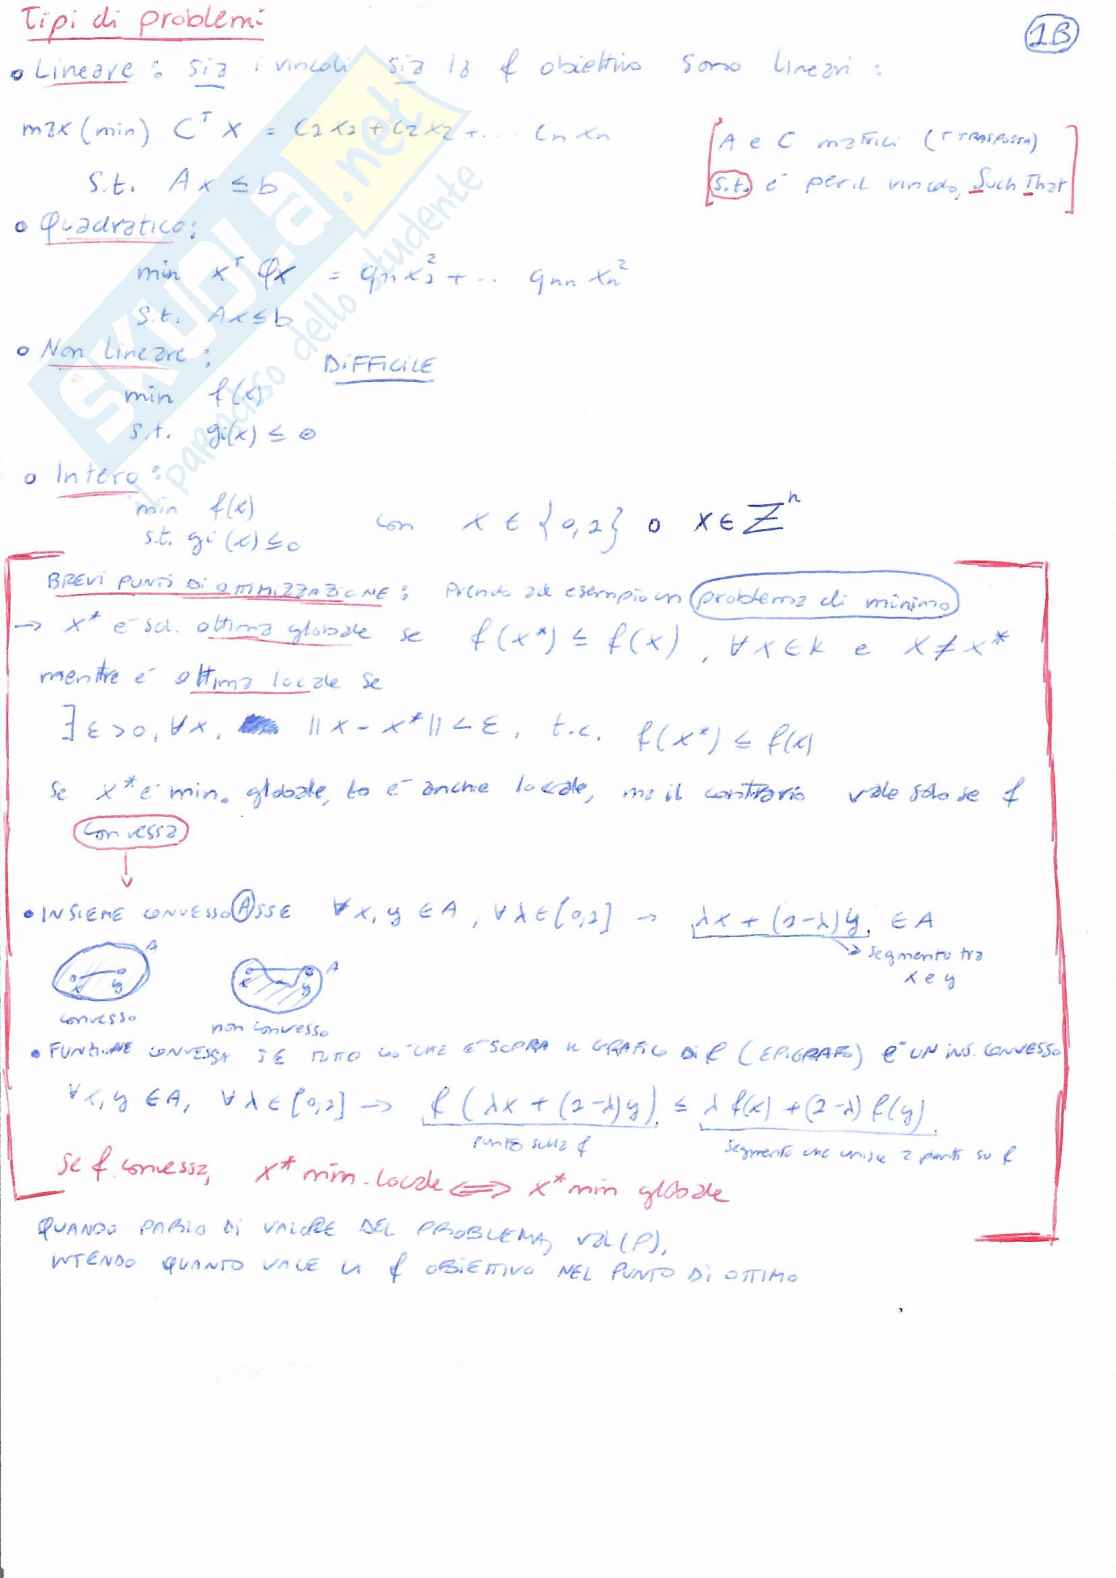 Tipi di problemi
1B
• Lineare : sia i vincoli sia la f obiettivo sono lineari :
max (min) Cᵀ X = C₁ X₁ + C₂ X₂ + ... Cn Xn
s.t. Ax ≤ b
[A e C matrici (T TRASPOSTA)
s.t. è per il vincolo, Such That]
• Quadratico :
min xᵀ Qx = q₁₁ x₁² + .. qnn xn²
s.t. Ax ≤ b
• Non lineare : DIFFICILE
min f(x)
s.t. gi(x) ≤ 0
• Intero :
min f(x)
s.t. gi(x) ≤ 0 con x ∈ {0,1} o x ∈ ℤⁿ
BREVI PUNTI DI OTTIMIZZAZIONE : Prendo ad esempio un problema di minimo
→ x* è sol. ottima globale se f(x*) ≤ f(x), ∀x∈K e x ≠ x*
mentre è ottima locale se
∃ ε > 0, ∀x, ||x - x*|| < ε, t.c. f(x*) ≤ f(x)
Se x* è min. globale, lo è anche locale, ma il contrario vale solo se f
convessa
• INSIEME CONVESSO A SSE ∀x, y ∈ A, ∀λ∈[0,1] → λx + (1-λ)y ∈ A
segmento tra
x e y
A
x y
convesso
A
x y
non convesso
• FUNZIONE CONVESSA SE TUTTO CIO' CHE E' SOPRA IL GRAFICO DI f (EPIGRAFO) E' UN INS. CONVESSO
∀x, y ∈ A, ∀λ∈[0,1] → f(λx + (1-λ)y) ≤ λ f(x) + (1-λ) f(y)
punto sulla f
segmento che unisce 2 punti su f
Se f convessa, x* min. locale ⟺ x* min globale
QUANDO PARLO DI VALORE DEL PROBLEMA, val(P),
INTENDO QUANTO VALE LA f OBIETTIVO NEL PUNTO DI OTTIMO
SKUOLA.net
il paradiso dello studente